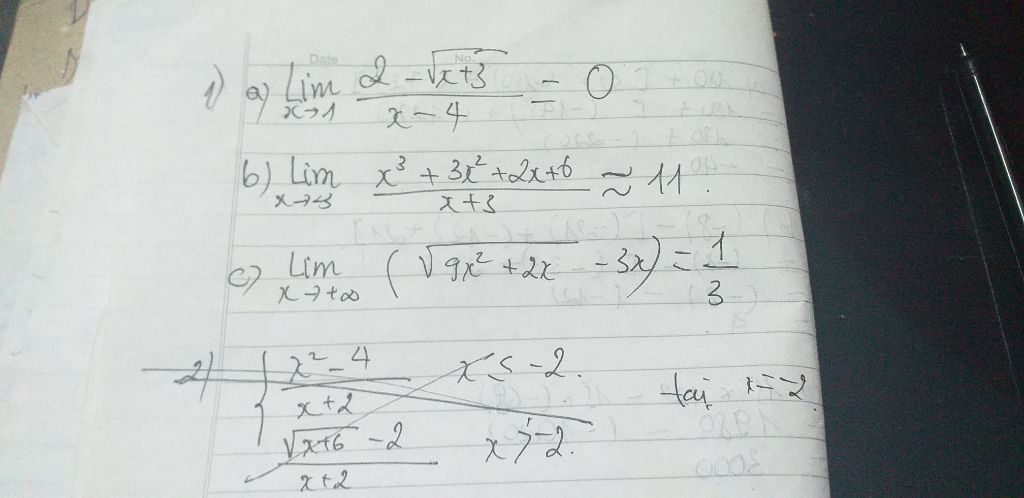 Date No.
1) a) Lim x→1 (2 - √(x+3))/(x - 4) = 0
b) Lim x→-3 (x³ + 3x² + 2x + 6)/(x + 3) ≈ 11.
c) Lim x→+∞ (√(9x² + 2x) - 3x) = 1/3
2) { (x² - 4)/(x + 2) x ≤ -2.
tại x = -2
(√(x+6) - 2)/(x + 2) x > -2.